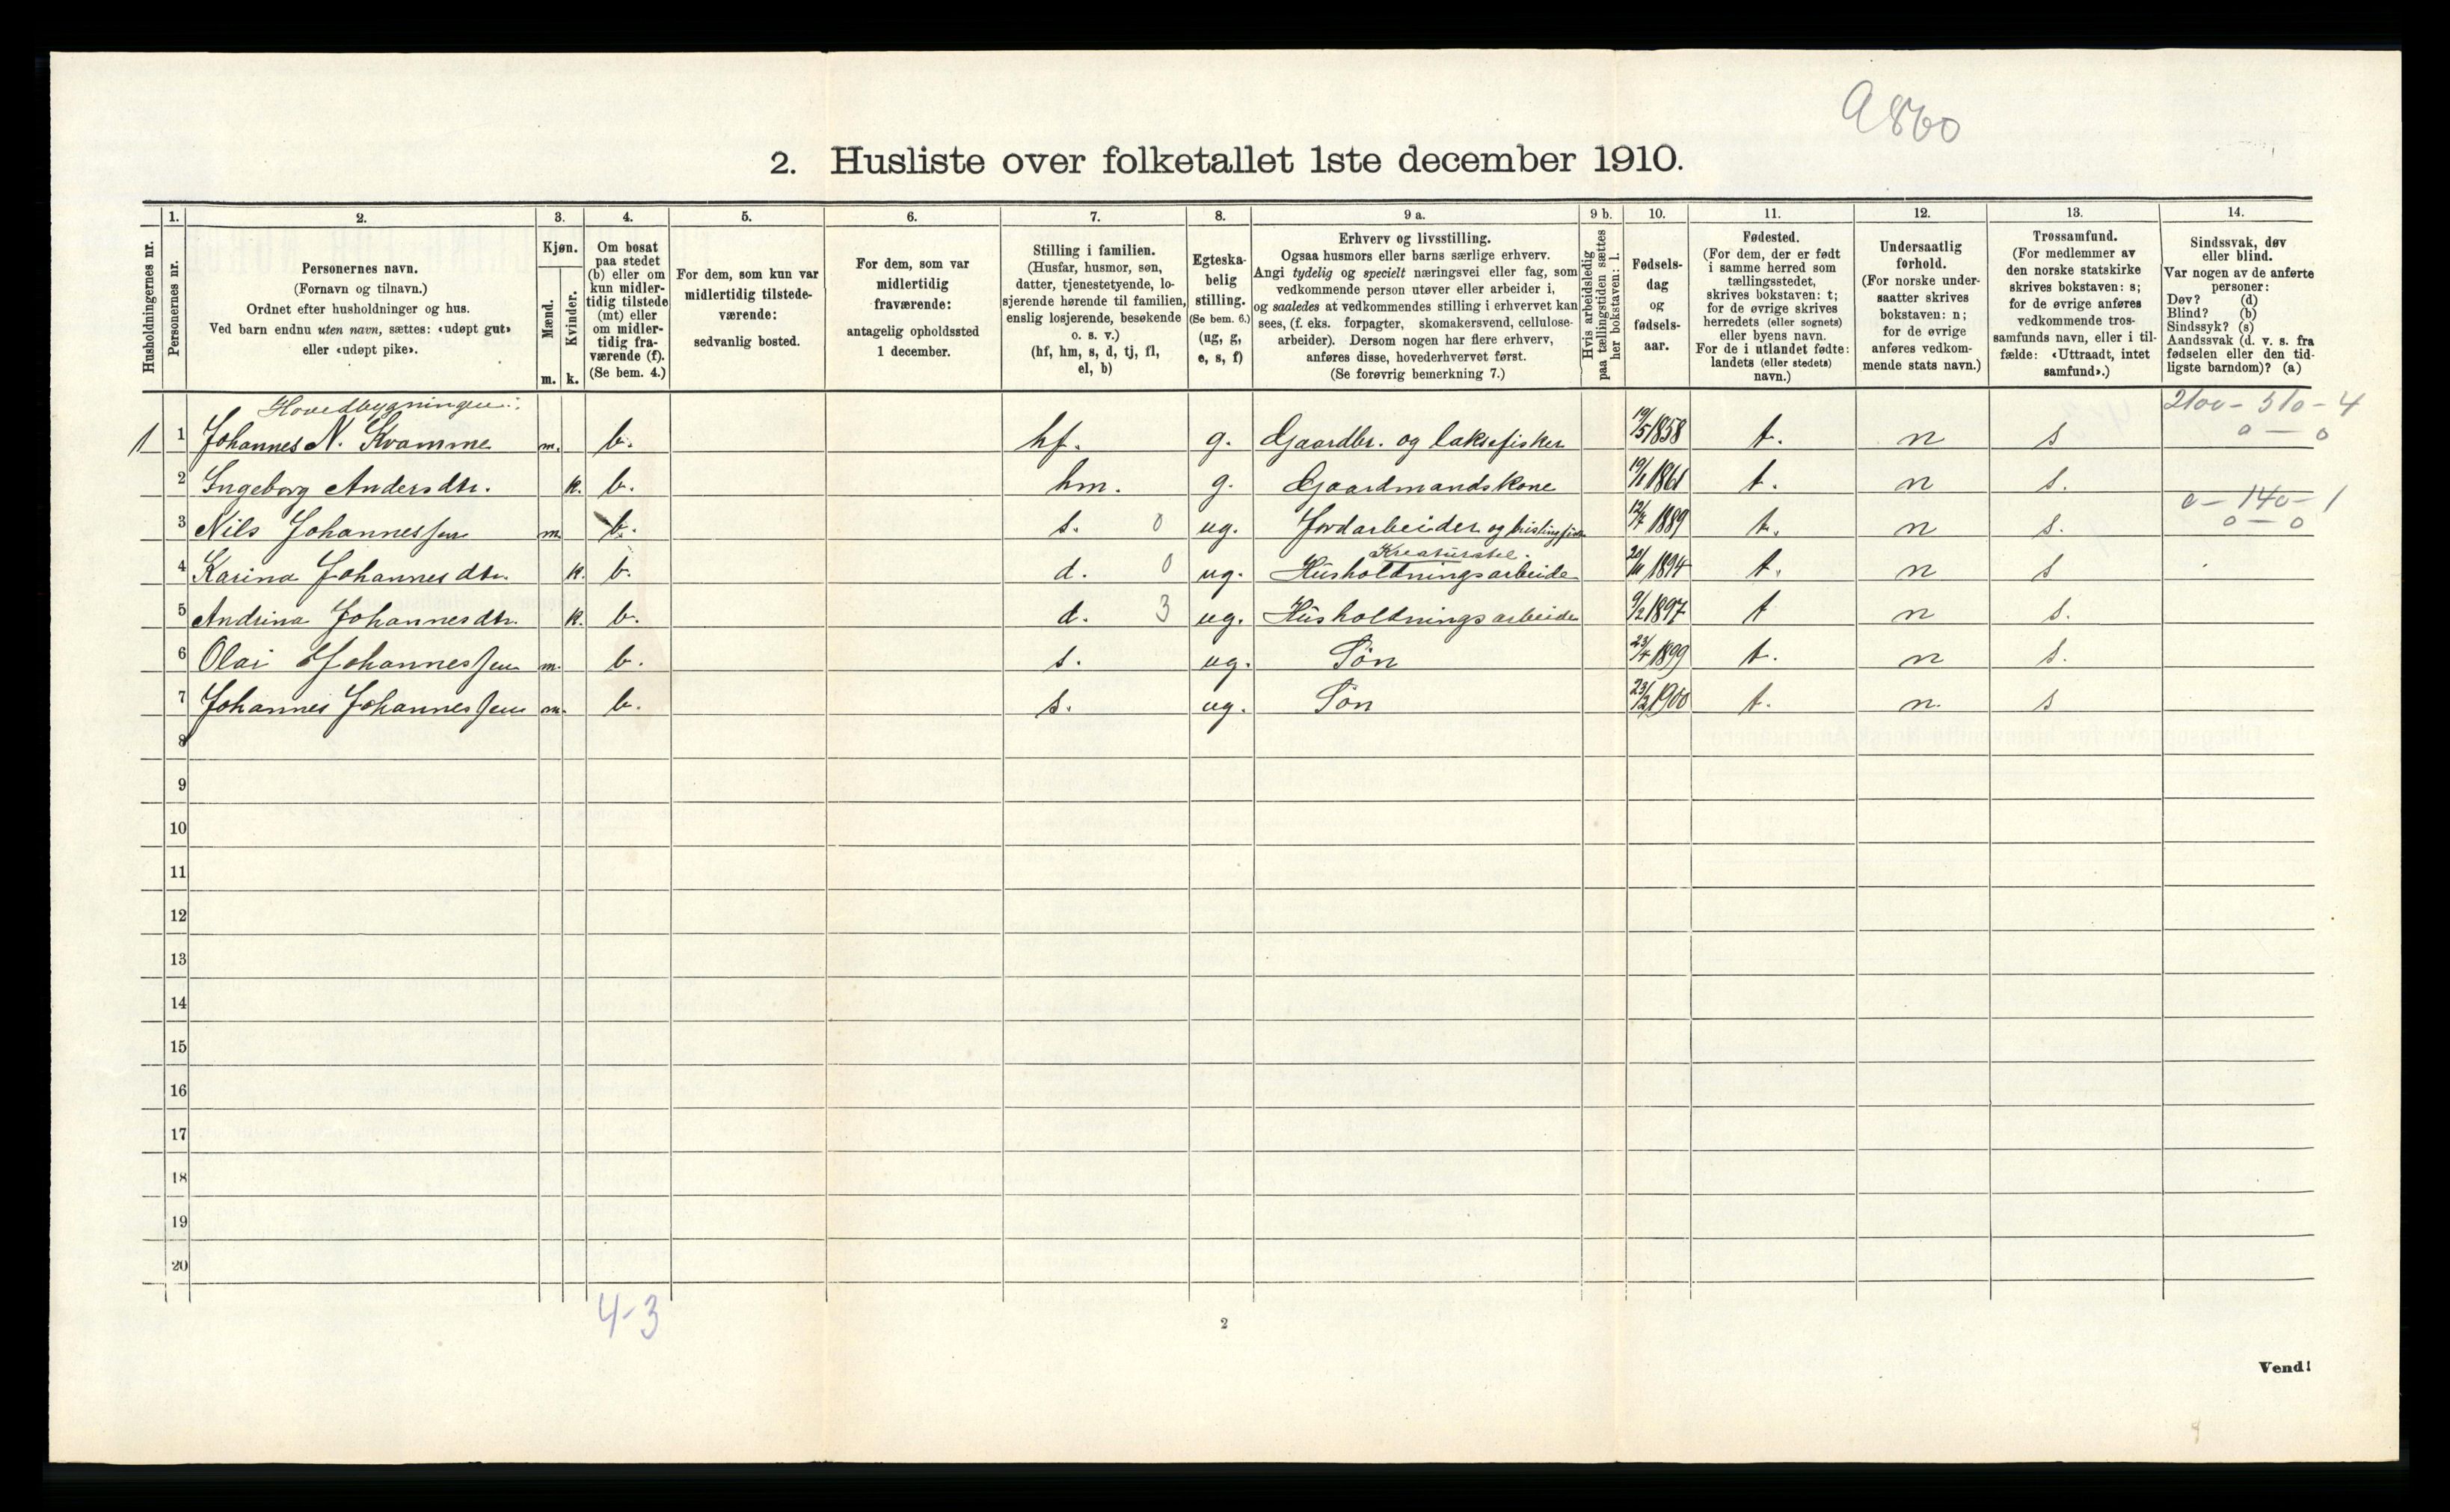 9860
2. Husliste over folketallet 1ste december 1910.
Husholdningernes nr.
1.
Personernes nr.
2.
Personernes navn.
(Fornavn og tilnavn.)
Ordnet efter husholdninger og hus.
Ved barn endnu uten navn, sættes: «udøpt gut»
eller «udøpt pike».
3.
Kjøn.
Mænd.
Kvinder.
m. k.
4.
Om bosat
paa stedet
(b) eller om
kun midler-
tidig tilstede
(mt) eller
om midler-
tidig fra-
værende (f).
(Se bem. 4.)
5.
For dem, som kun var
midlertidig tilstede-
værende:
sedvanlig bosted.
6.
For dem, som var
midlertidig
fraværende:
antagelig opholdssted
1 december.
7.
Stilling i familien.
(Husfar, husmor, søn,
datter, tjenestetyende, lo-
sjerende hørende til familien,
enslig losjerende, besøkende
o. s. v.)
(hf, hm, s, d, tj, fl,
el, b)
8.
Egteska-
belig
stilling.
(Se bem. 6.)
(ug, g,
e, s, f)
9 a.
Erhverv og livsstilling.
Ogsaa husmors eller barns særlige erhverv.
Angi tydelig og specielt næringsvei eller fag, som
vedkommende person utøver eller arbeider i,
og saaledes at vedkommendes stilling i erhvervet kan
sees, (f. eks. forpagter, skomakersvend, cellulose-
arbeider). Dersom nogen har flere erhverv,
anføres disse, hovederhvervet først.
(Se forøvrig bemerkning 7.)
9 b.
Hvis arbeidsledig
paa tællingstiden sættes
her bokstaven: l.
10.
Fødsels-
dag
og
fødsels-
aar.
11.
Fødested.
(For dem, der er født
i samme herred som
tællingsstedet,
skrives bokstaven: t;
for de øvrige skrives
herredets (eller sognets)
eller byens navn.
For de i utlandet fødte:
landets (eller stedets)
navn.)
12.
Undersaatlig
forhold.
(For norske under-
saatter skrives
bokstaven: n;
for de øvrige
anføres vedkom-
mende stats navn.)
13.
Trossamfund.
(For medlemmer av
den norske statskirke
skrives bokstaven: s;
for de øvrige anføres
vedkommende tros-
samfunds navn, eller i til-
fælde: «Uttraadt, intet
samfund».)
14.
Sindssvak, døv
eller blind.
Var nogen av de anførte
personer:
Døv? (d)
Blind? (b)
Sindssyk? (s)
Aandssvak (d. v. s. fra
fødselen eller den tid-
ligste barndom)? (a)
Hovedbygningen: 2100 - 510 - 4
1 1 Johannes N. Kvamme m. b. hf. g. Gaardbr. og laksefisker 19/5 1858 t. n s 0 - 0
2 Ingeborg Andersdtr. k. b. hm. g. Gaardmandskone 19/1 1861 t. n s.
0 - 140 - 1
3 Nils Johannessen m b. s. 0 ug. Jordarbeider og 12/7 1889 t. n s. 0 - 0
Kreaturstel.
4 Karina Johannesdtr. k. b. d. 0 ug. Husholdningsarbeide 20/11 1894 t. n s
5 Andrina Johannesdtr. k. b. d. 3 ug. Husholdningsarbeide 9/2 1897 t n s.
6 Olai Johannessen m. b. s. ug. Søn 23/4 1899 t. n s.
7 Johannes Johannessen m. b. s. ug. Søn 23/2 1900 t. n. s
8
9
10
11
12
13
14
15
16
17
18
19
20
4-3
2
Vend!